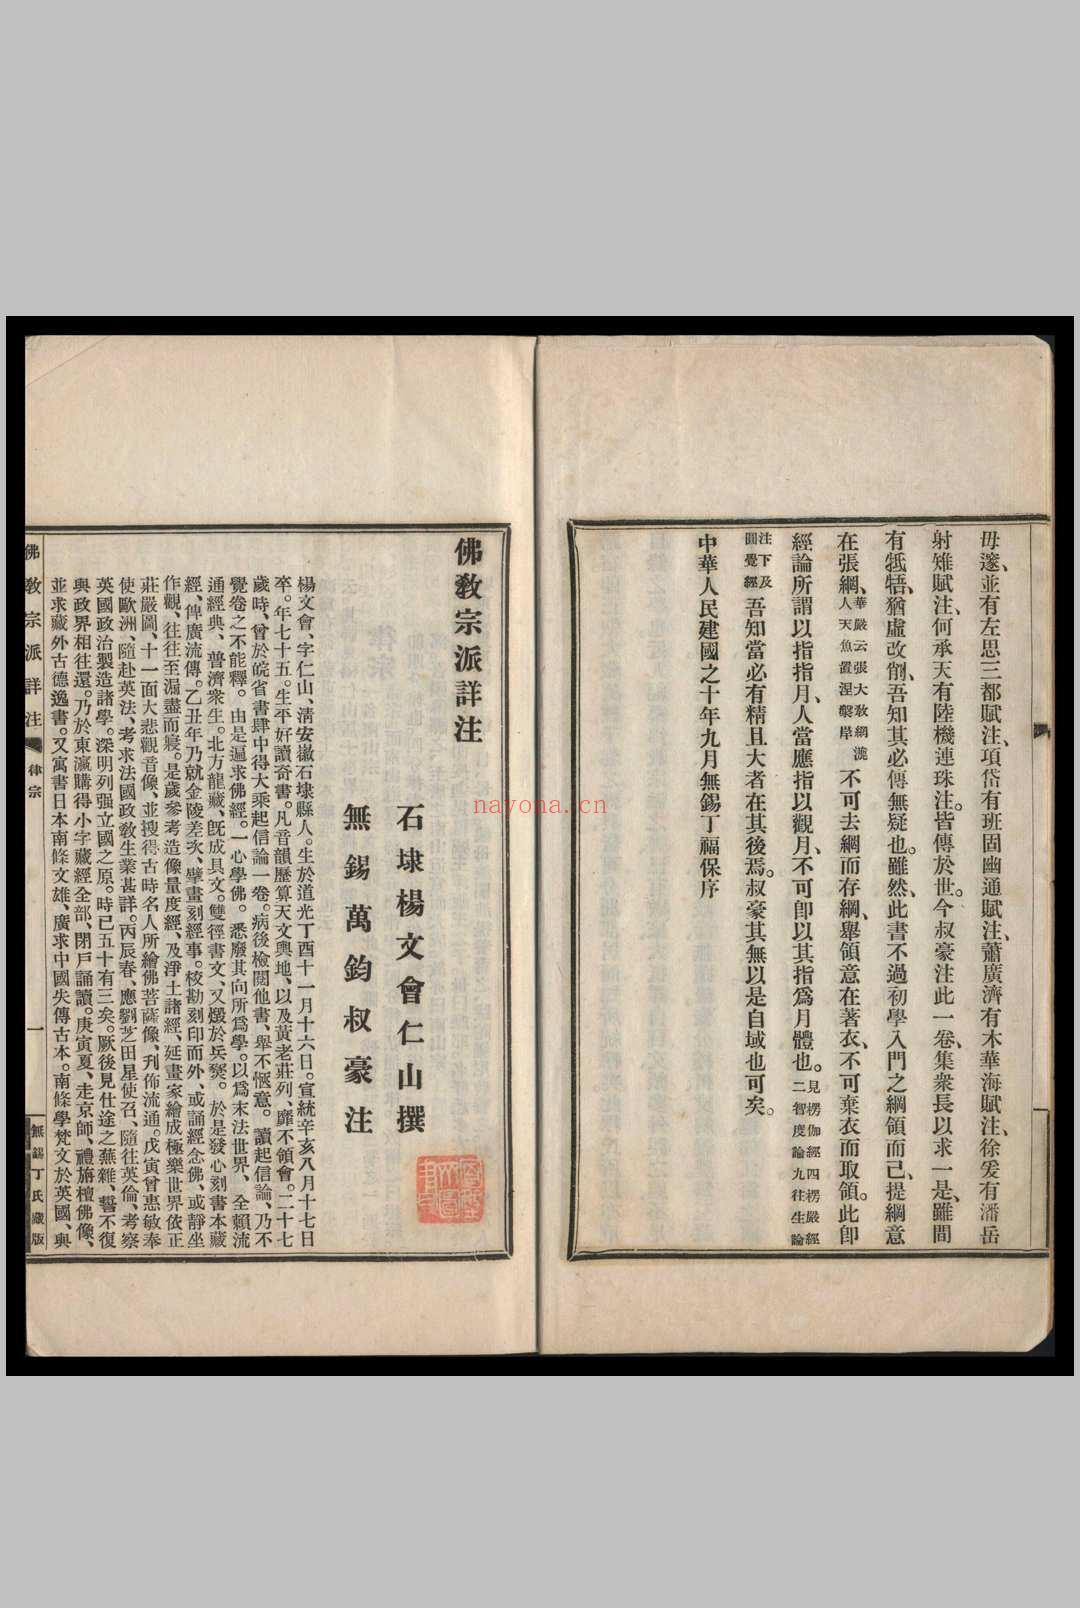 毋邃、並有左思三都賦注、項岱有班固幽通賦注、蕭廣濟有木華海賦注、徐爰有潘岳
射雉賦注、何承天有陸機連珠注。皆傳於世。今叔豪注此一卷、集衆長以求一是、雖間
有牴牾、猶虛改削、吾知其必傳無疑也。雖然、此書不過初學入門之綱領而已、提綱意
在張綱、華嚴云張大敎網漉人天魚置涅槃岸不可去綱而存綱、舉領意在著衣、不可棄衣而取領。此卽
經論所謂以指指月、人當應指以觀月、不可卽以其指爲月體也。見楞伽經四楞嚴經二智度論九往生論
注下及圓覺經吾知當必有精且大者在其後焉。叔豪其無以是自域也可矣。
中華人民建國之十年九月無錫丁福保序
佛敎宗派詳注
石埭楊文會仁山撰
無錫萬鈞叔豪注
楊文會、字仁山、淸安徽石埭縣人。生於道光丁酉十一月十六日。宣統辛亥八月十七日
卒。年七十五。生平好讀奇書。凡音韻歷算天文輿地、以及黃老莊列、靡不領會。二十七
歲時、曾於皖省書肆中得大乘起信論一卷。病後檢閱他書、舉不愜意。讀起信論、乃不
覺卷之不能釋。由是遍求佛經。一心學佛。悉廢其向所爲學。以爲末法世界、全賴流
通經典、普濟衆生。北方龍藏、旣成具文。雙徑書文、又燬於兵燹。於是發心刻書本藏
經、俾廣流傳。乙丑年乃就金陵差次、擘畫刻經事。校勘刻印而外、或誦經念佛、或靜坐
作觀、往往至漏盡而寢。是歲參考造像量度經、及淨土諸經、延畫家繪成極樂世界依正
莊嚴圖、十一面大悲觀音像、並搜得古時名人所繪佛菩薩像、刋佈流通。戊寅曾惠敏奉
使歐洲、隨赴英法、考求法國政敎生業甚詳。丙辰春、應劉芝田星使召、隨往英倫、考察
英國政治製造諸學。深明列强立國之原。時已五十有三矣。厥後見仕途之蕪雜、誓不復
與政界相往還。乃於東瀛購得小字藏經全部、閉戶誦讀。庚寅夏、走京師、禮旃檀佛像、
並求藏外古德逸書。又寓書日本南條文雄、廣求中國失傳古本。南條學梵文於英國、與
佛敎宗派詳注
律宗
一
無錫丁氏藏版
nayona.cn